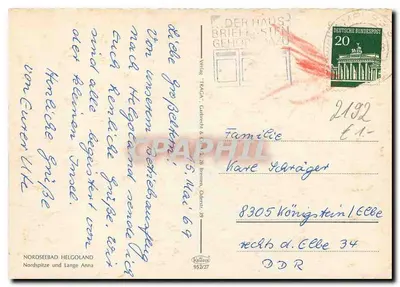 15. Mai 69
Liebe Großeltern!
Von unserem Betriebsausflug
nach Helgoland sende ich
Euch herzliche Grüße. Wir
sind alle begeistert von
der kleinen Insel.
Herzliche Grüße
von Eurer Ute
NORDSEEBAD HELGOLAND
Nordspitze und Lange Anna
Bremen
DER HAUS
BRIEFKASTEN
DEUTSCHE BUNDESPOST
20
2192
€ 1-
Familie
Karl Schräger
8305 Königstein/Elbe
rechts d. Elbe 34
DDR